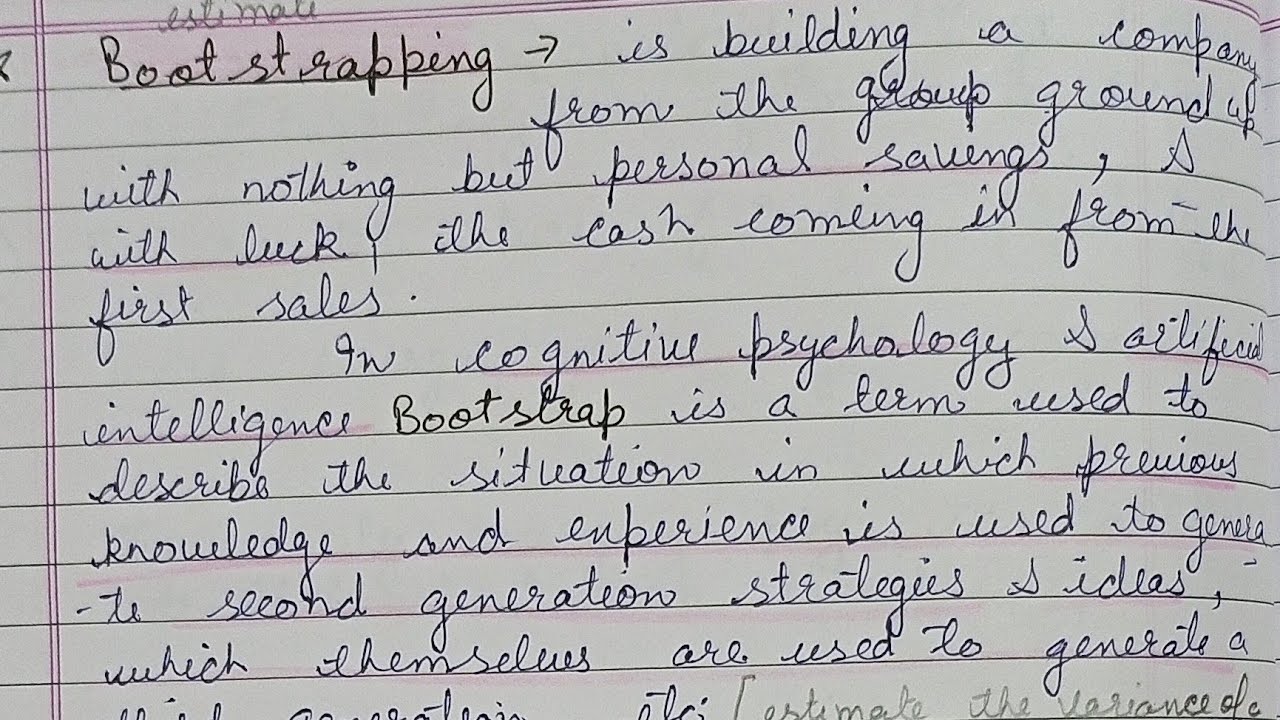 estimate
Bootstrapping → is building a company
from the group ground up
with nothing but personal savengs, &
with luck, the cash coming in from the
first sales.
In cognitive psychology & artificial
intelligence Bootstrap is a term used to
describe the situation in which previous
knowledge and experience is used to genera
-te second generation strategies & ideas,
which themselves are used to generate a
generation etc: [estimate the variance of a